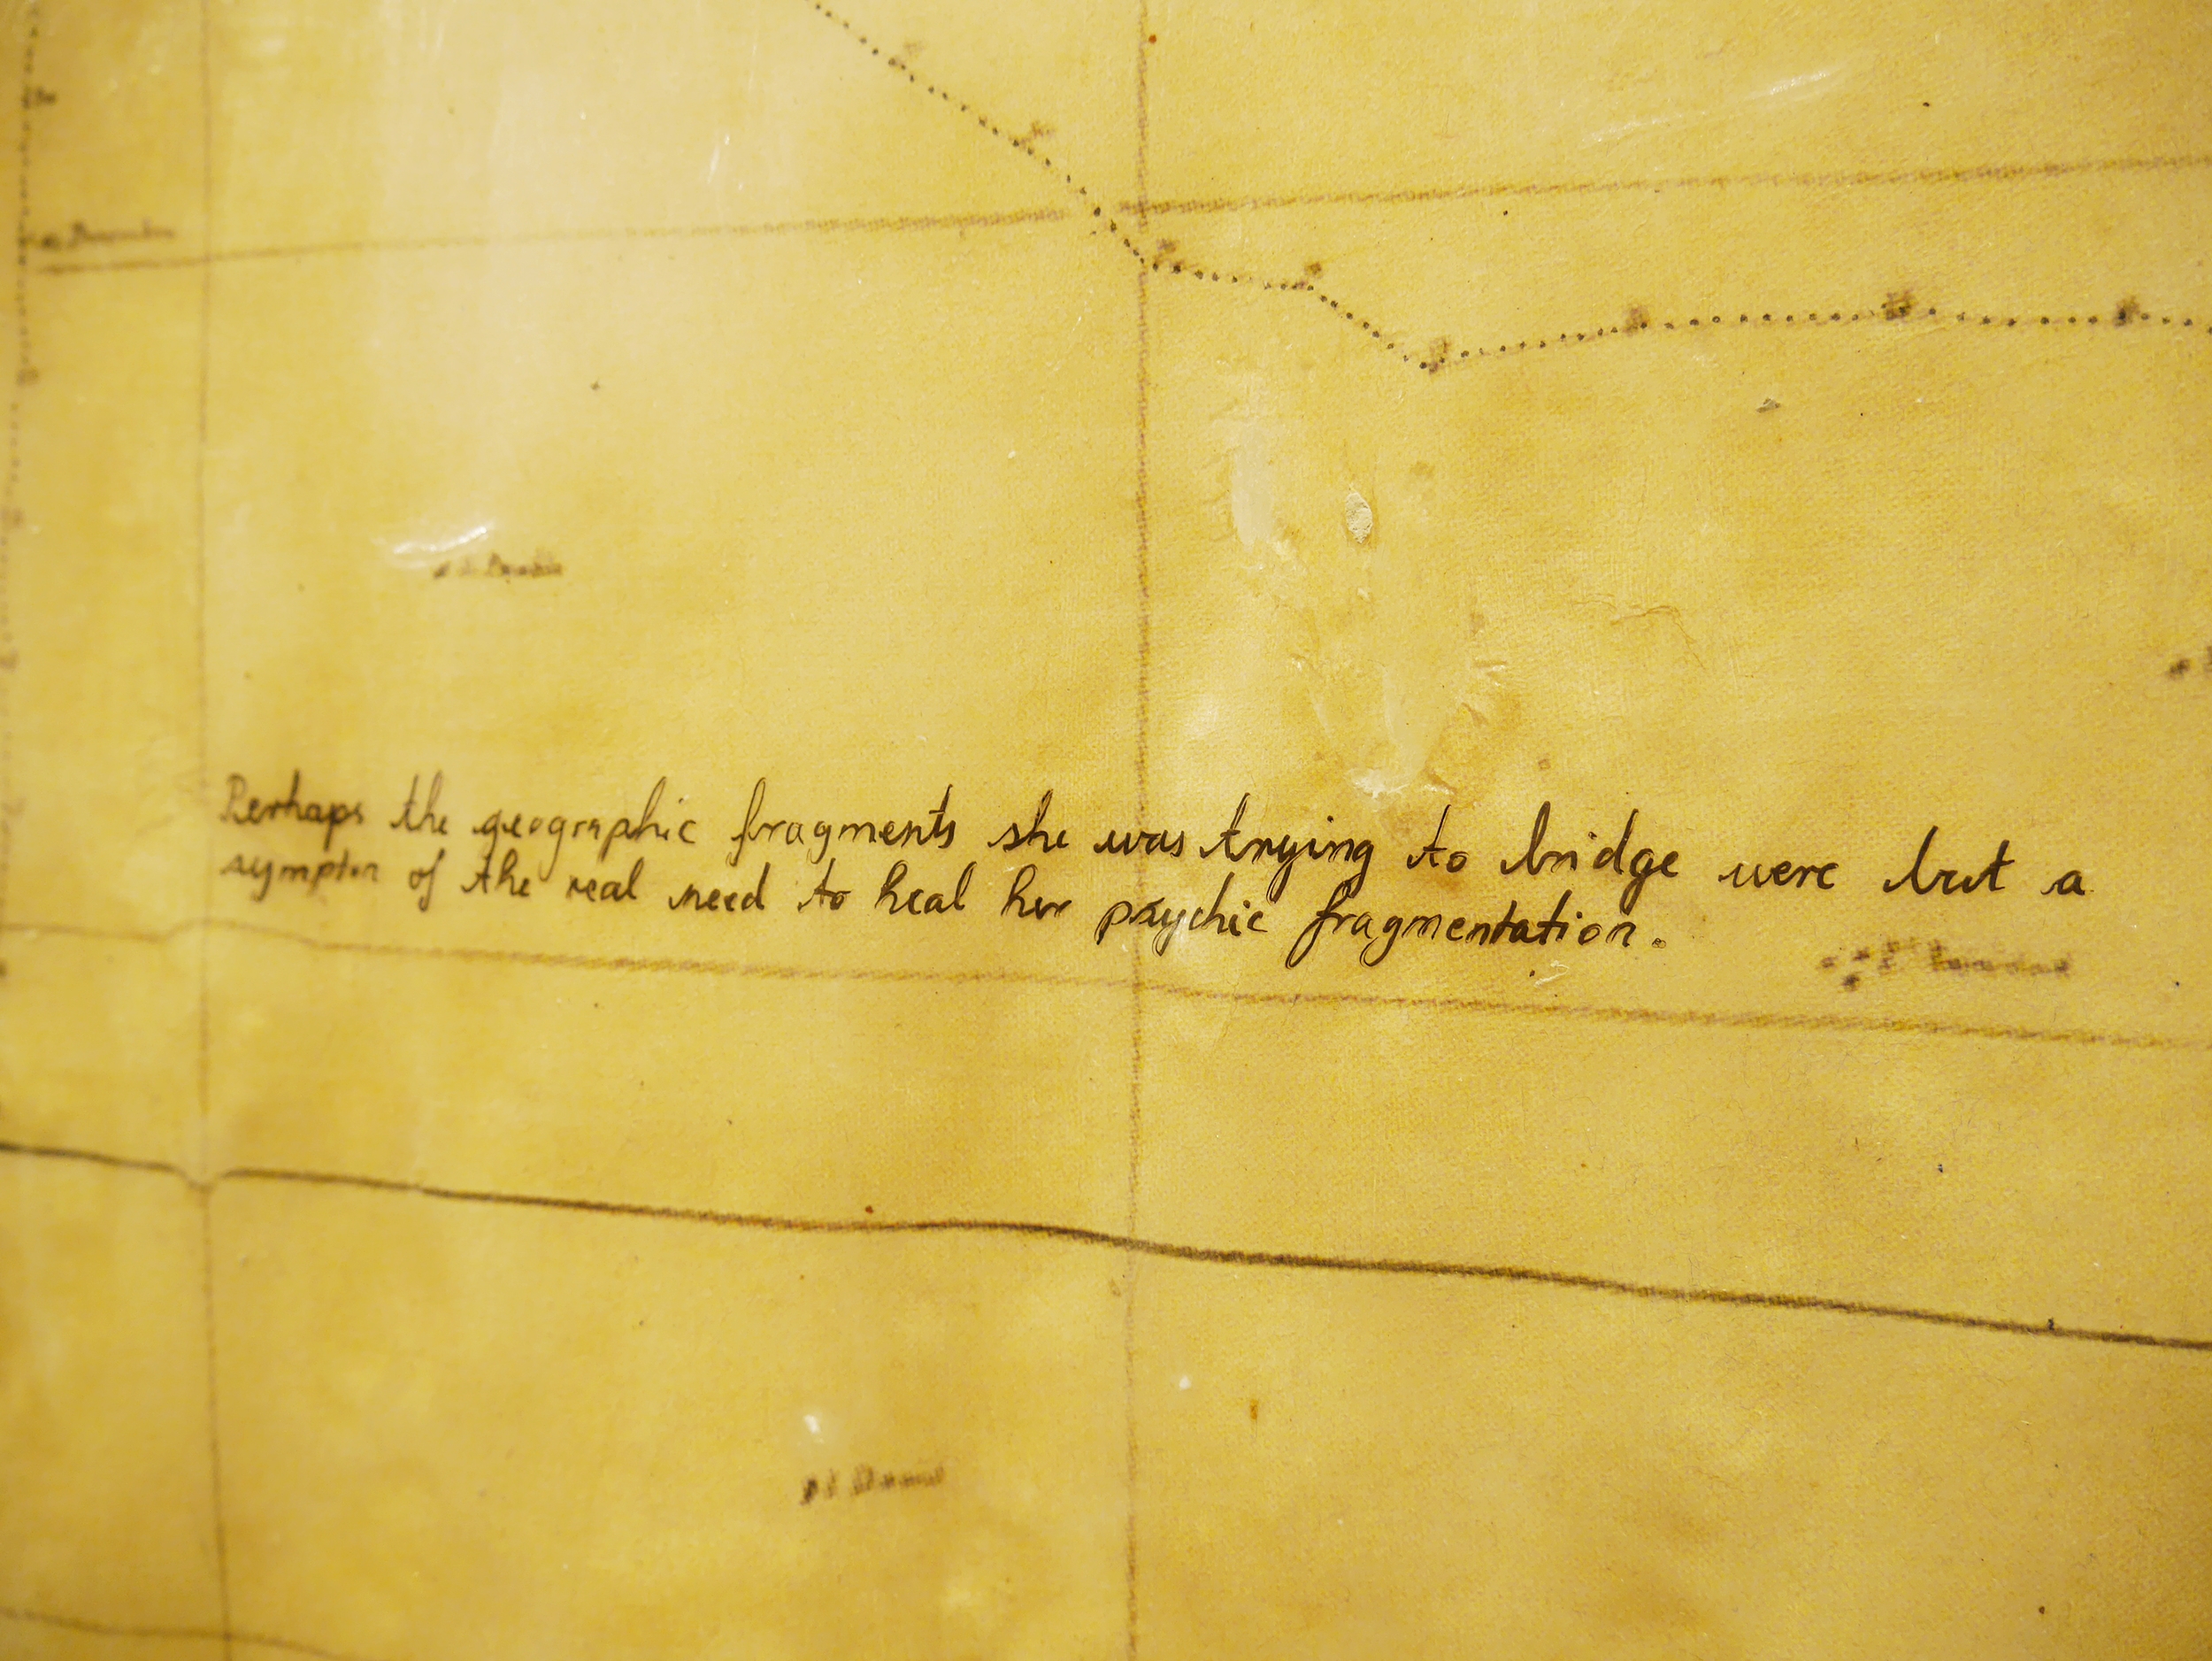 Perhaps the geographic fragments she was trying to bridge were but a
symptom of the real need to heal her psychic fragmentation.